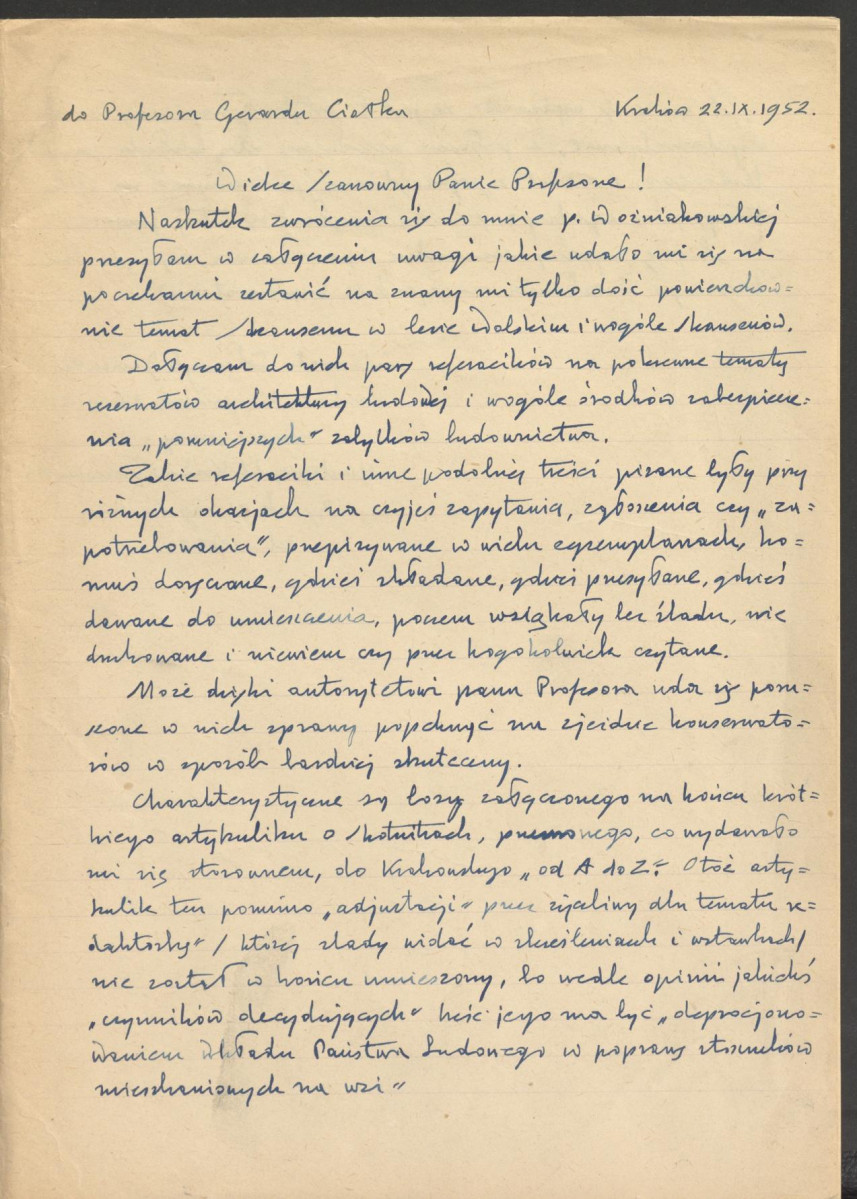 do Profesora Gerarda Ciołka Kraków 22.IX.1952.
Wielce Szanowny Panie Profesorze!
Naskutek zwrócenia się do mnie p. Woźniakowskiej
przesyłam w załączeniu uwagi jakie udało mi się na
poczekaniu zestawić na znany mi tylko dość powierzchow=
nie temat skansenu w lesie Wolskim i wogóle skansenów.
Dołączam do nich parę referacików na pokrewne tematy
rezerwatów architektury ludowej i wogóle środków zabezpiecze=
nia „pomniejszych" zabytków budownictwa.
Takie referaciki i inne podobnej treści pisane były przy
różnych okazjach na czyjeś zapytania, zgłoszenia czy „za=
potrzebowania", przepisywane w wielu egzemplarzach, ko=
muś doręczane, gdzieś składane, gdzieś przesyłane, gdzieś
dawane do umieszczenia, poczem wsiąkały bez śladu, nie
drukowane i niewiem czy przez kogokolwiek czytane.
Może dzięki autorytetowi pana Profesora uda się poru=
szone w nich sprawy popchnąć na zjeździe konserwato=
rów w sposób bardziej skuteczny.
Charakterystyczne są losy załączonego na końcu krót=
kiego artykuliku o Skotnikach, pisanego, co wydawało
mi się stosownem, do Krakowskiego „od A do Z". Otóż arty=
kulik ten pomimo „adjustacji" przez życzliwą dla tematu re=
daktorkę" / której ślady widać w skreśleniach i wstawkach/
nie został w końcu umieszczony, bo wedle opinii jakichś
„czynników decydujących" treść jego ma być „deprecjono=
waniem wkładu Państwa Ludowego w poprawę stosunków
mieszkaniowych na wsi"